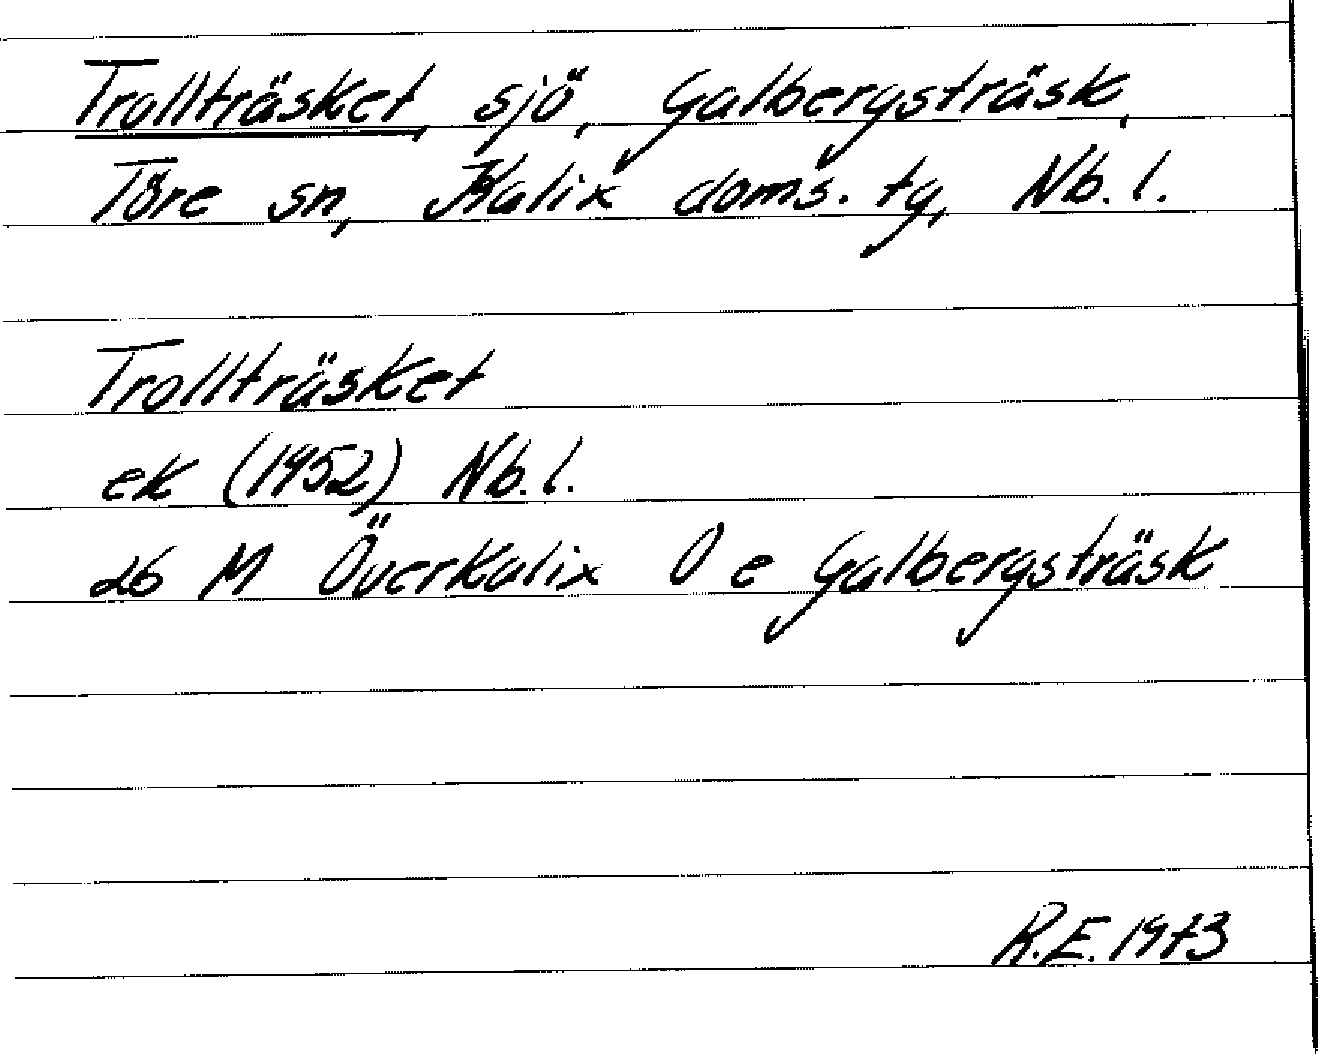 Trollträsket, sjö, Galbergsträsk,
Töre sn, Kalix doms. tg, Nb. l.
Trollträsket
ek (1952) Nb. l.
26 M Överkalix O e Galbergsträsk
R.E. 1973